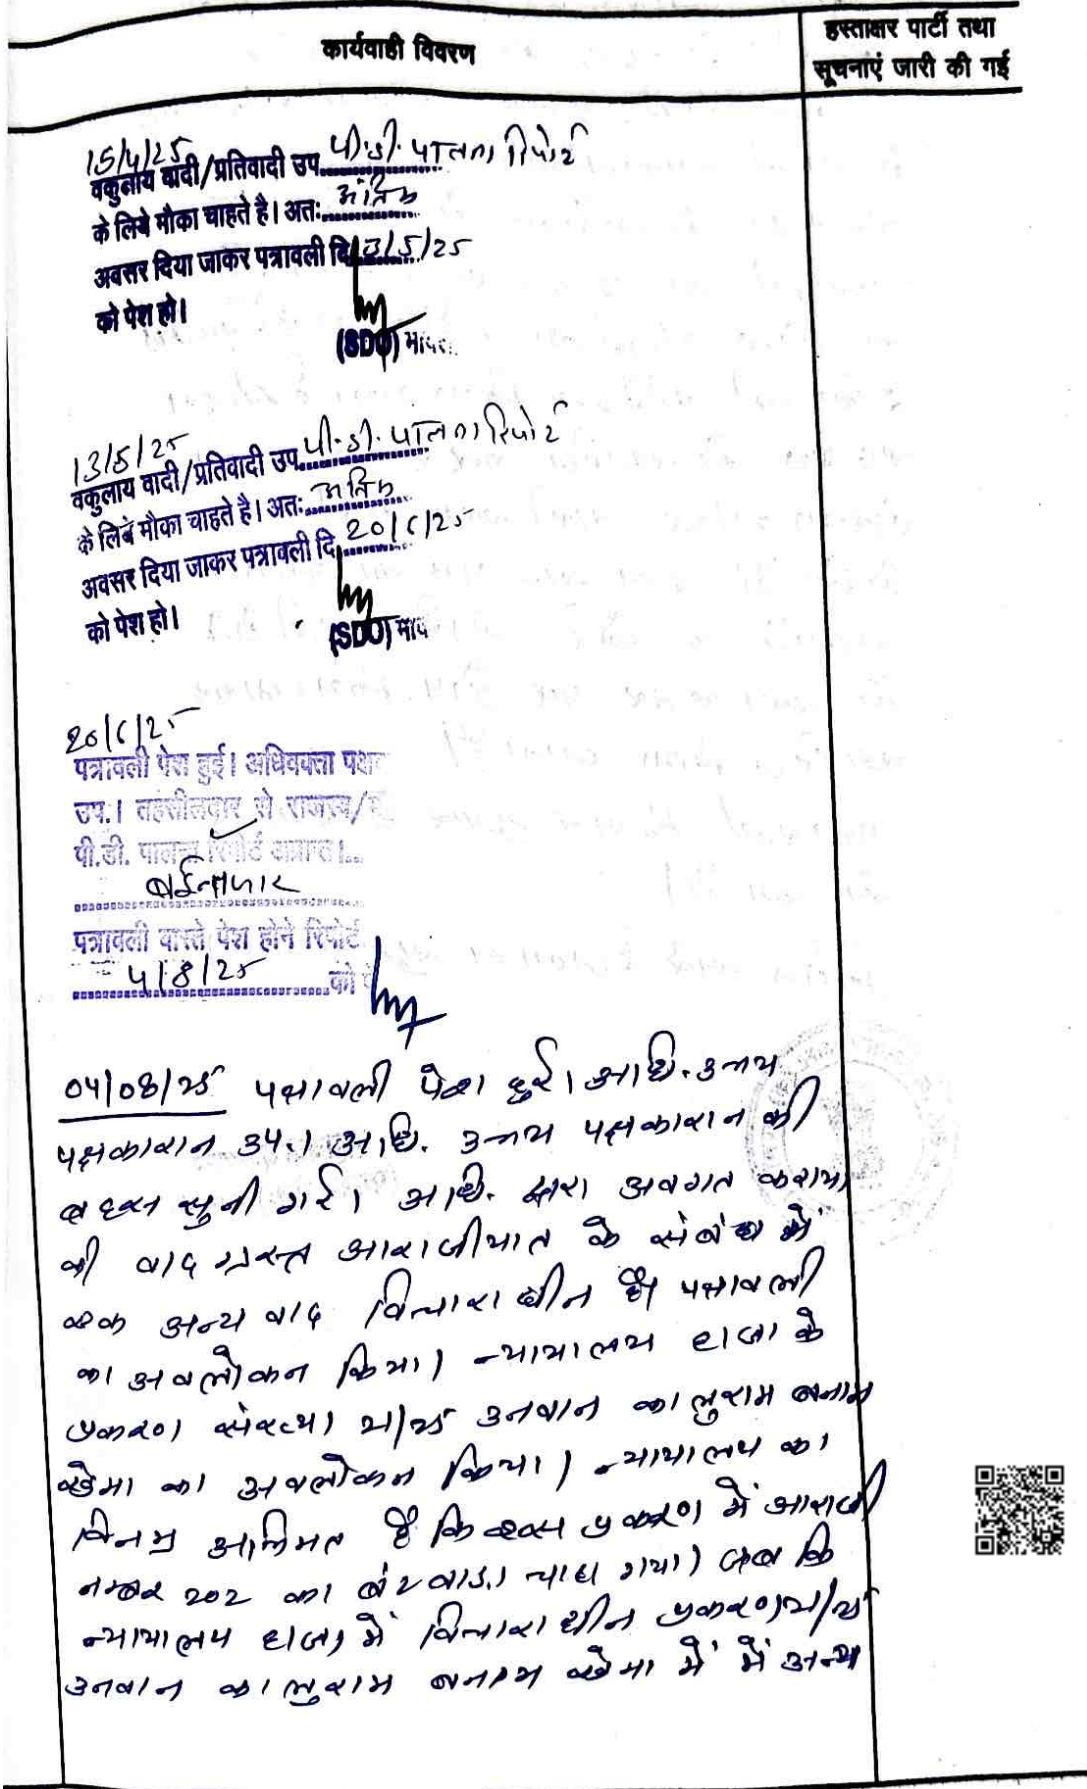 कार्यवाही विवरण
हस्ताक्षर पार्टी तथा
सूचनाएं जारी की गई
15/4/25
वकुलाय वादी/प्रतिवादी उप. पी.डी. पालना रिपोर्ट
के लिये मौका चाहते है। अतः अंतिम
अवसर दिया जाकर पत्रावली दि. 13/5/25
को पेश हो।
(SDO)
13/5/25
वकुलाय वादी/प्रतिवादी उप. पी.डी. पालना रिपोर्ट
के लिये मौका चाहते है। अतः अंतिम
अवसर दिया जाकर पत्रावली दि. 20/6/25
को पेश हो।
(SDO)
20/6/25
पत्रावली पेश हुई। अधिवक्ता
उप.। तहसीलदार से राजस्व/
पी.डी. पालना रिपोर्ट अप्राप्त।
पत्रावली वास्ते पेश होने रिपोर्ट
4/8/25 को
04/08/25 पत्रावली पेश हुई। अधि. उभय
पक्षकारान उप.। अधि. उभय पक्षकारान की
बहस सुनी गई। अधि. द्वारा अवगत कराया
की वाद ग्रस्त आराजीयात के संबंध में
एक अन्य वाद विचाराधीन है। पत्रावली
का अवलोकन किया। न्यायालय हाजा के
प्रकरण संख्या उनवान कालुराम बनाम
खेमा का अवलोकन किया। न्यायालय का
विनम्र अभिमत है कि इस प्रकरण में आराजी
नम्बर 202 का बंटवाडा चाहा गया। जब कि
न्यायालय हाजा में विचाराधीन प्रकरण
उनवान कालुराम बनाम खेमा में में अन्य